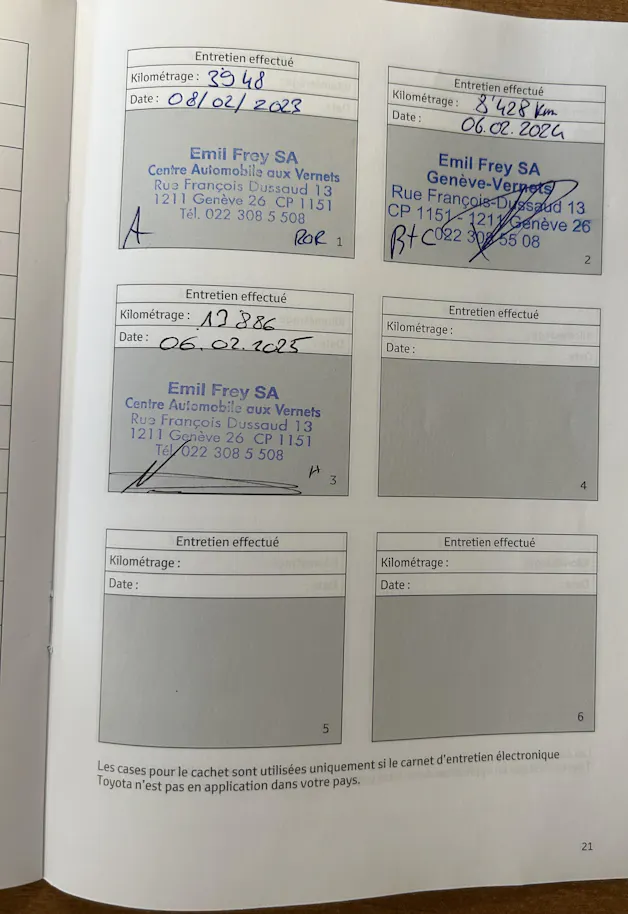 Entretien effectué
Kilométrage : 3948
Date : 08/02/2023
Emil Frey SA
Centre Automobile aux Vernets
Rue François Dussaud 13
1211 Genève 26 CP 1151
Tél. 022 308 5 508
A
1
Entretien effectué
Kilométrage : 8'428 Km
Date : 06.02.2024
Emil Frey SA
Genève-Vernets
Rue François-Dussaud 13
CP 1151 - 1211 Genève 26
B+C 022 308 55 08
2
Entretien effectué
Kilométrage : 886
Date : 06.02.2025
Emil Frey SA
Centre Automobile aux Vernets
Rue François Dussaud 13
1211 Genève 26 CP 1151
Tél. 022 308 5 508
3
Entretien effectué
Kilométrage :
Date :
4
Entretien effectué
Kilométrage :
Date :
5
Entretien effectué
Kilométrage :
Date :
6
Les cases pour le cachet sont utilisées uniquement si le carnet d'entretien électronique
Toyota n'est pas en application dans votre pays.
21